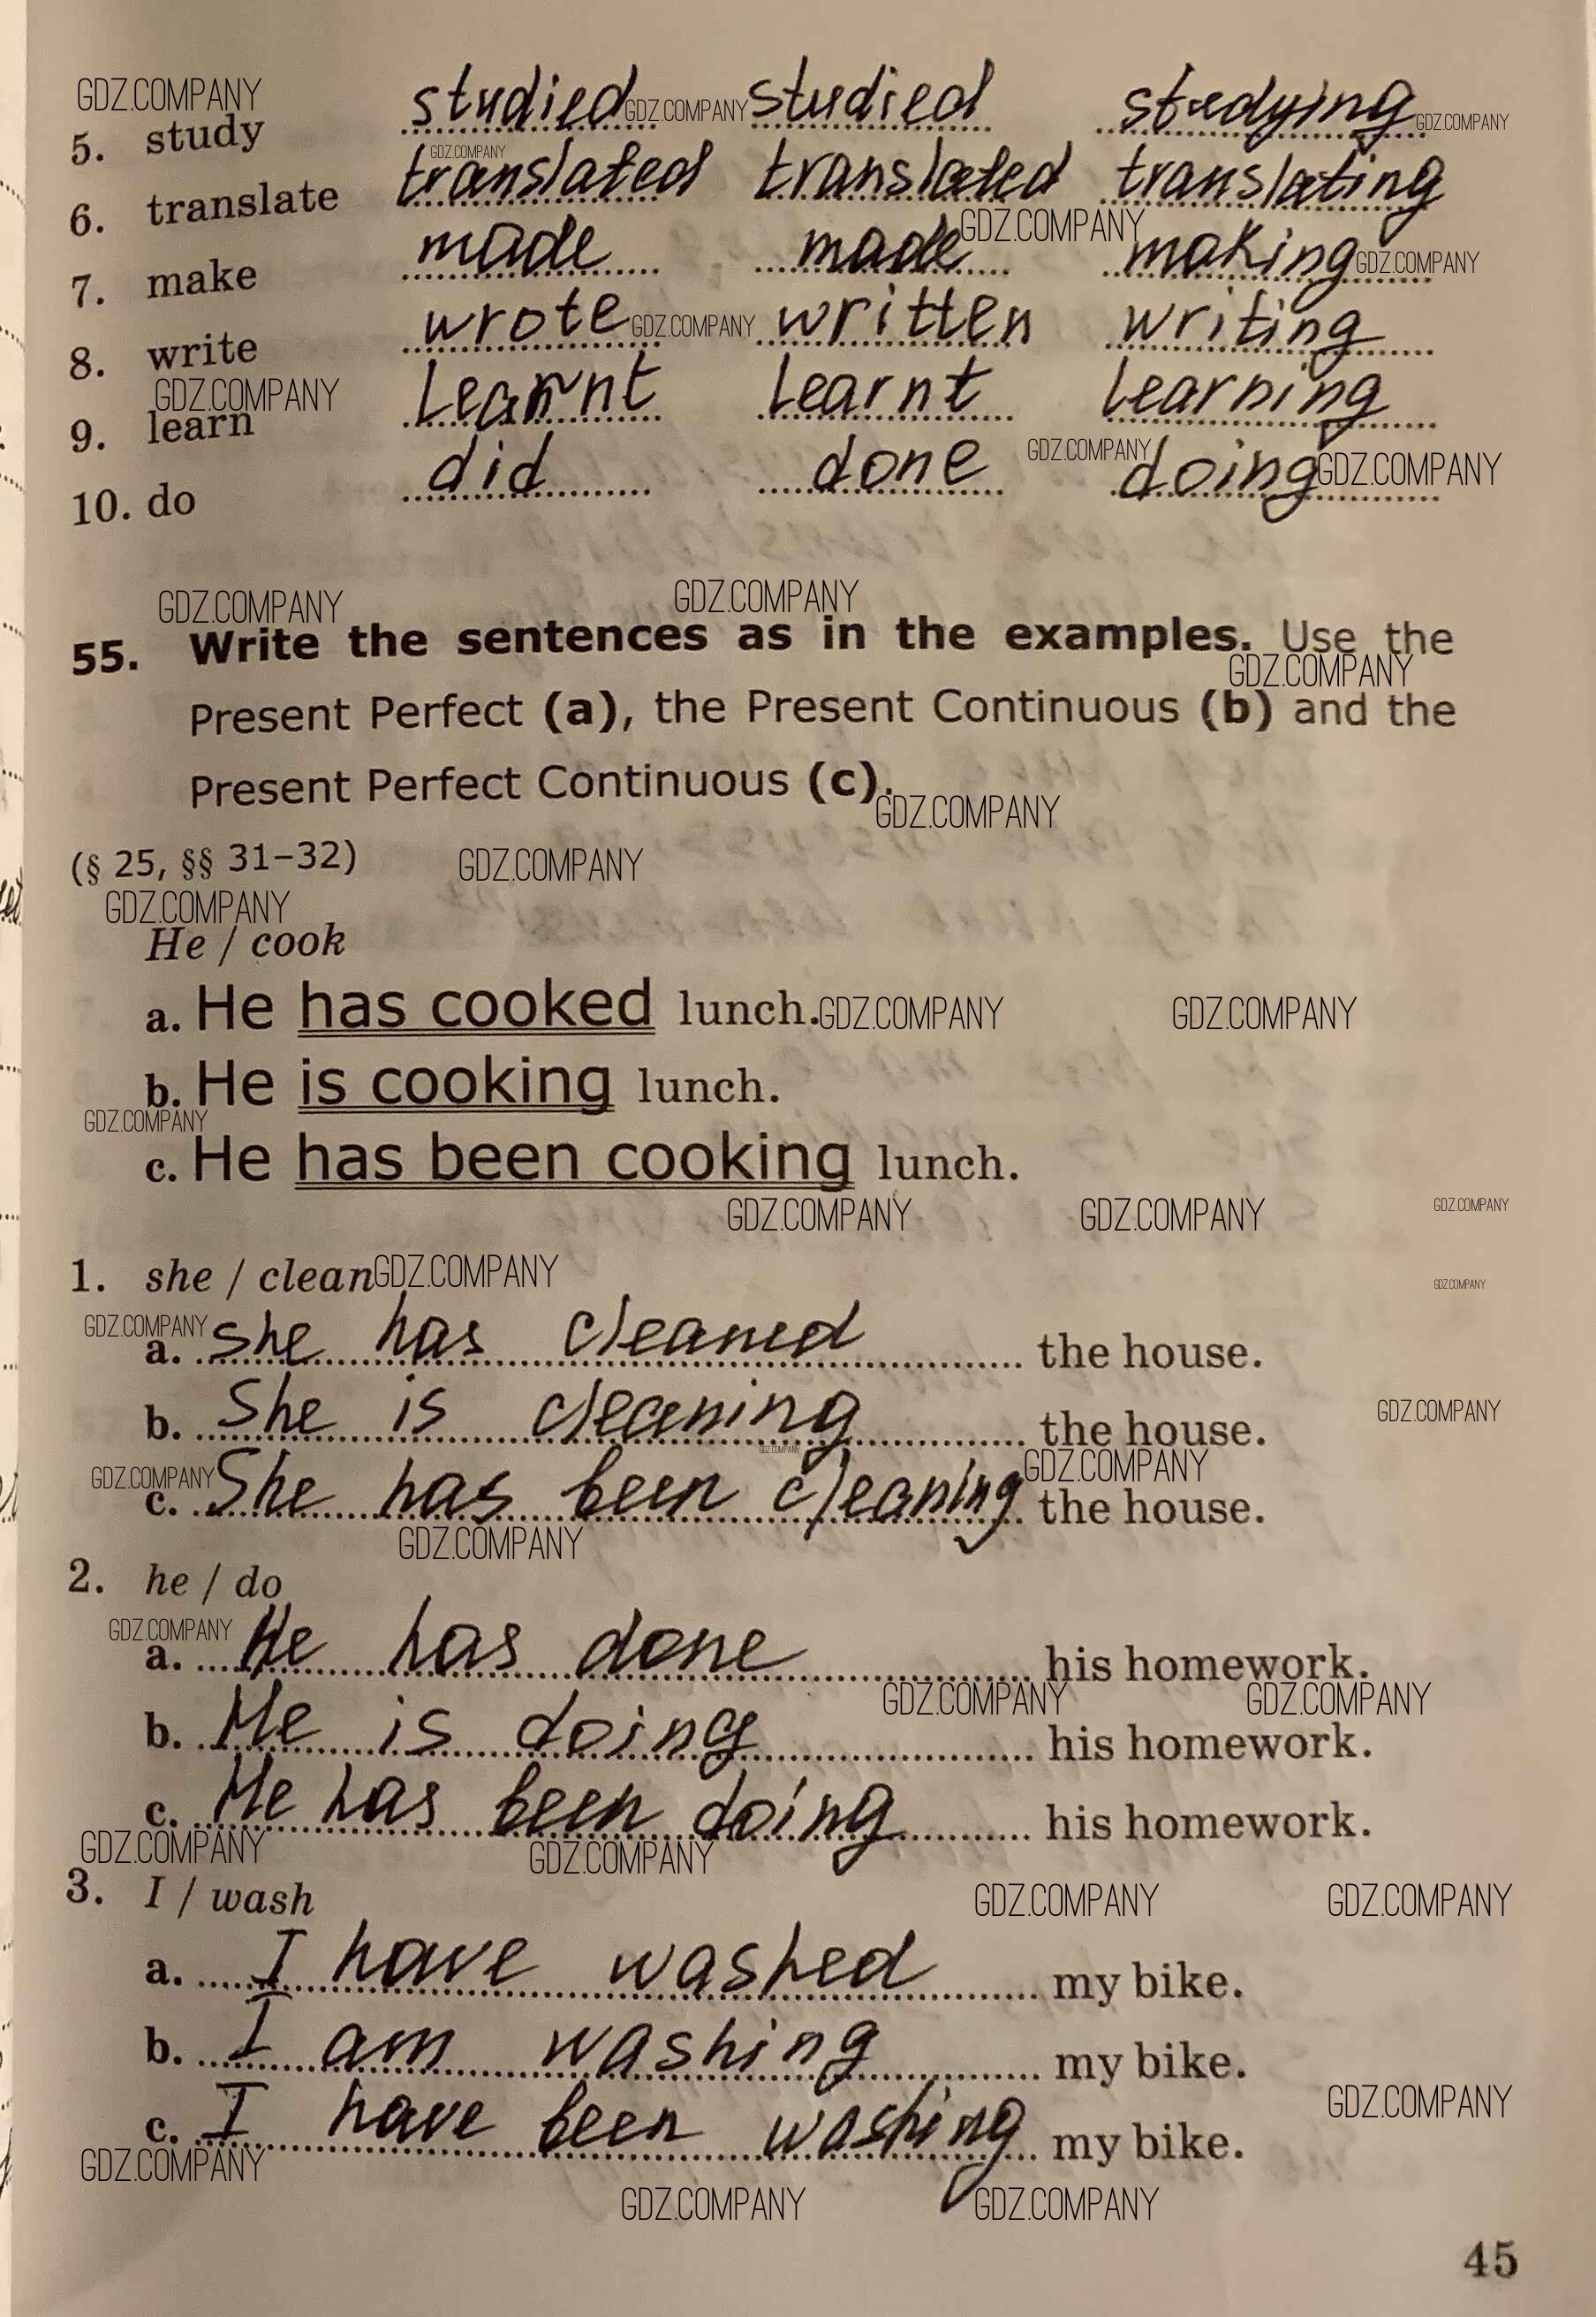 GDZ.COMPANY
5. study studied GDZ.COMPANY studied studying GDZ.COMPANY
GDZ.COMPANY
6. translate translated translated translating
GDZ.COMPANY
7. make made made making GDZ.COMPANY
8. write wrote GDZ.COMPANY written writing
GDZ.COMPANY
9. learn learnt learnt learning
GDZ.COMPANY
10. do did done doing GDZ.COMPANY
GDZ.COMPANY GDZ.COMPANY
55. Write the sentences as in the examples. Use the
GDZ.COMPANY
Present Perfect (a), the Present Continuous (b) and the
Present Perfect Continuous (c).
GDZ.COMPANY
(§ 25, §§ 31–32) GDZ.COMPANY
GDZ.COMPANY
He / cook
a. He has cooked lunch. GDZ.COMPANY GDZ.COMPANY
b. He is cooking lunch.
GDZ.COMPANY
c. He has been cooking lunch.
GDZ.COMPANY GDZ.COMPANY GDZ.COMPANY
1. she / clean GDZ.COMPANY GDZ.COMPANY
GDZ.COMPANY
a. She has cleaned the house.
b. She is cleaning the house. GDZ.COMPANY
GDZ.COMPANY
GDZ.COMPANY GDZ.COMPANY
c. She has been cleaning the house.
GDZ.COMPANY
2. he / do
GDZ.COMPANY
a. He has done his homework.
GDZ.COMPANY GDZ.COMPANY
b. He is doing his homework.
c. He has been doing his homework.
GDZ.COMPANY GDZ.COMPANY
3. I / wash GDZ.COMPANY GDZ.COMPANY
a. I have washed my bike.
b. I am washing my bike.
GDZ.COMPANY
c. I have been washing my bike.
GDZ.COMPANY
GDZ.COMPANY GDZ.COMPANY
45